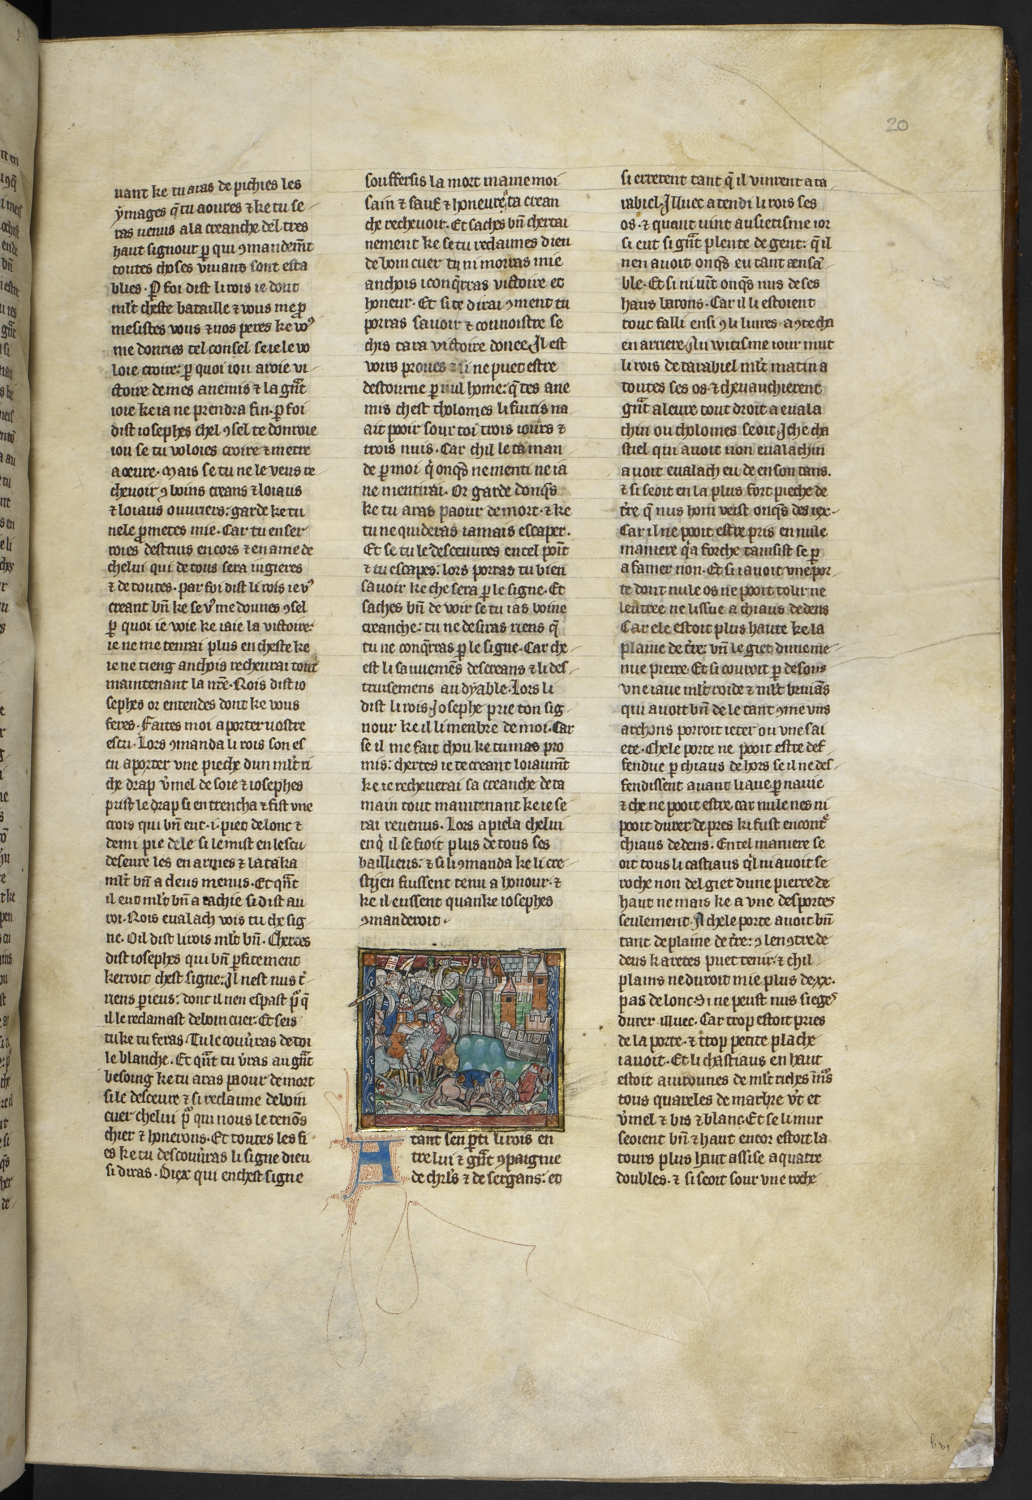 20
uant ke tu aras de pichies les
ymages q̃ tu aoures ⁊ ke tu se
ras uenus a la creanche del tres
haut signour p̱ qui ꝯmandem̃t
toutes choses uiuans sont esta
blies. P̱ foi dist li rois ie dout
ml̃t cheste bataille ⁊ vous me p̱
mesistes vous ⁊ uos peres ke vo⁹
me donries tel consel se ie le vo
loie croire: p̱ quoi iou aroie vi
ctoire de mes anemis ⁊ la gñt
ioie ke ia ne prendra fin. p̱ foi
dist iosephes chel ꝯsel te donroie
iou se tu voloies croire ⁊ metre
a oeure. Mais se tu ne le veus re
cheuoir ꝯ boins creans ⁊ loiaus
⁊ loiaus ouuriers: garde ke tu
nele p̱metes mie. Car tu en ser
roies destruis en cors ⁊ en ame de
chelui qui de tous sera iugieres
⁊ de toutes. par foi dist li rois ie v⁹
creant bñ ke se v⁹ me dounes ꝯsel
p̱ quoi ie voie ke iaie la victoire:
ie ne me tenrai plus en cheste ke
ie ne tieng anchois recheurai tout
maintenant la ur̃e. Rois dist io
sephes or entendes dont ke vous
feres. Faites moi aporter uostre
escu. Lors ꝯmanda li rois son es
cu aporter vne pieche dun ml̃t ri
che drap v̾mel de soie ⁊ iosephes
prist le drap si en trencha ⁊ fist vne
crois qui bñ eut .i. piet de lonc ⁊
demi pie de le si le mist en lescu
deseure les enarmes ⁊ lataka
ml̃t bñ a cleus menus. Et qñt
il eut ml̃t bñ atachie si dist au
roi. Rois eualach vois tu che sig
ne. Oil dist li rois ml̃t bñ. Chertes
dist iosephes qui bñ p̱fitement
kerroit chest signe: Il nest nus t̾
riens p̱ieus: dont il nen
il le reclamast de boin cuer. Et seis
tu ke tu feras. Tu le couu̾ras de toi
le blanche. Et qñt tu v̾ras au gñt
besoing ke tu aras paour de mort
si le desceuure ⁊ si reclaime de boin
cuer chelui p̱ qui nous le tenõs
chier ⁊ honerons. Et toutes les fi
es ke tu descouu̾ras li signe dieu
si diras. Diex qui en chest signe
souffersis la mort mainemoi
sain ⁊ sauf ⁊ honeure a ta crean
che recheuoir. Et saches bñ chertai
nement ke se tu reclaimes dieu
de boin cuer tu ni morras mie
anchois i conq̃rras victoire et
honeur. Et si te dirai ꝯment tu
porras sauoir ⁊ counoistre se
chis tara victoire donee. Il est
voirs proues ne puet estre
destourne p̱ nul home: q̃ tes ane
mis chest tholomes li fuitis na
ait pooir sour toi trois iours ⁊
trois nuis. Car chil le ta man
de p̱ moi q̾ onq̃s ne menti ne ia
ne mentirai. Or garde donq̃s
ke tu aras paour de mort. ⁊ ke
tu ne quideras iamais escaper.
Et se tu le desceuures en cel poĩt
⁊ tu escapes: lors porras tu bien
sauoir ke che sera p̱ le signe. Et
saches bñ de voir se tu ias boine
creanche: tu ne desiras riens q̃
tu ne conq̃rras p̱ le signe. Car che
est li sauuemẽs des creans ⁊ li des
truisemens au dyable. Lors li
dist li rois. Iosephe prie ton sig
nour ke il li menbre de moi. Car
se il me fait chou ke tu mas pro
mis: chertes ie te creant loiaum̃t
ke ie recheuerai sa creanche de ta
main tout maintenant ke ie se
rai reuenus. Lors apiela chelui
en q̾ il se fioit plus de tous ses
bailliens: ⁊ si li ꝯmanda ke li cre
stijen fuissent tenu a honour. ⁊
ke il eussent quanke iosephes
ꝯmanderoit.
Atant sen p̱ti li rois en
tre lui ⁊ gñt ꝯpaignie
de chrl̃s ⁊ de sergans: et
si errerent tant q̃ il vinrent a ta
rabiel. Illuec atendi li rois ses
os. ⁊ quant uint au sietisme ior
si eut si gñt plente de gent: q̃ il
nen auoit onq̃s eu tant
ble. Et si ni uĩt onq̃s nus de ses
haus barons. Car il li estoient
tout falli ensi ꝯ li liures a ꝯte cha
en arriere. Au witisme iour mut
li rois de tarabiel ml̃t matin a
toutes ses os. ⁊ cheuauchierent
gñt aleure tout droit a euala
chin ou tholomes seoit. Iche cha
stiel qui auoit non eualachin
auoit eualach eu de en son tans.
⁊ si seoit en la plus fort pieche de
t̾re q̃ nus hom veist onq̃s des iex.
Car il ne pooit estre pris en nule
maniere q̾a forche tausist se p̱
afamer non. Et si i auoit vne por
te dont nule os ne pooit tolir ne
lentree ne lissue a chiaus dedens
Car ele estoit plus haute ke la
plaine de t̾re: bñ le giet dune me
nue pierre. Et si couroit p̱ desous
vne iaue ml̃t roide ⁊ ml̃t bruiãs
qui auoit bñ de le tant ꝯme vns
archons porroit ieter ou vne sai
ete. Chele porte ne pooit estre def
fendue p̱ chiaus dehors se il ne def
fendissent auant liaue p̱ nauie
⁊ che ne pooit estre car nule nes ni
pooit durer de pres ki fust encont̾
chiaus dedens. En tel maniere se
oit tous li castiaus q̾l ni auoit se
roche non del giet dune pierre de
haut ne mais ke a vne des portes
seulement. A chele porte auoit bñ
tant de plaine de t̾re: ꝯ len ꝯtre de
deus karetes puet tenir: ⁊ chil
plains ne duroit mie plus de .xx.
pas de lonc. Si ne peust nus sieges
durer illuec. Car trop estoit pries
de la porte. ⁊ trop petite plache
i auoit. Et li chastiaus en haut
estoit auirounes de ml̃t riches murs
tous quareles de marbre v̾t et
v̾mel ⁊ bis ⁊ blanc. Et si li mur
seoient bñ ⁊ haut encor estoit la
tours plus haut assise a quatre
doubles. ⁊ si seoit sour vne roche